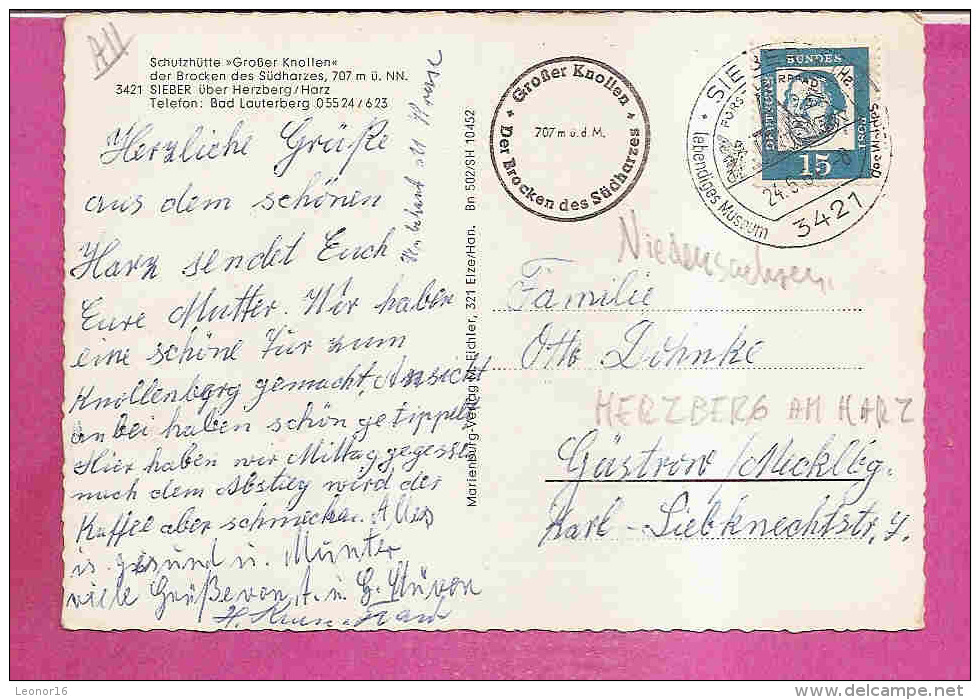 All
Schutzhütte »Großer Knollen«
der Brocken des Südharzes, 707 m ü. NN.
3421 SIEBER über Herzberg/Harz
Telefon: Bad Lauterberg 05524/623
Herzliche Grüße
aus dem schönen
Harz sendet Euch
Eure Mutter. Wir haben
eine schöne Tur zum
Knollenberg gemacht, Ansicht
anbei haben schön getippelt
Hier haben wir Mittag gegessen
nach dem Abstieg wird der
Kaffee aber schmecken. Alles
is gesund u. Munter
viele Grüße von A. u. G.
Marienburg-Verlag M. Eichler, 321 Elze/Han. Bn 502/SH 10452
Großer Knollen
707 m ü. d. M.
Der Brocken des Südharzes
DEUTSCHE BUNDESPOST
15
lebendiges Museum
3421
Niedersachsen.
Familie
Otto Döhnke
HERZBERG AM HARZ
Güstrow /Mecklbg.
Karl-Liebknechtstr. 9.
Leonor16
delcampe.net